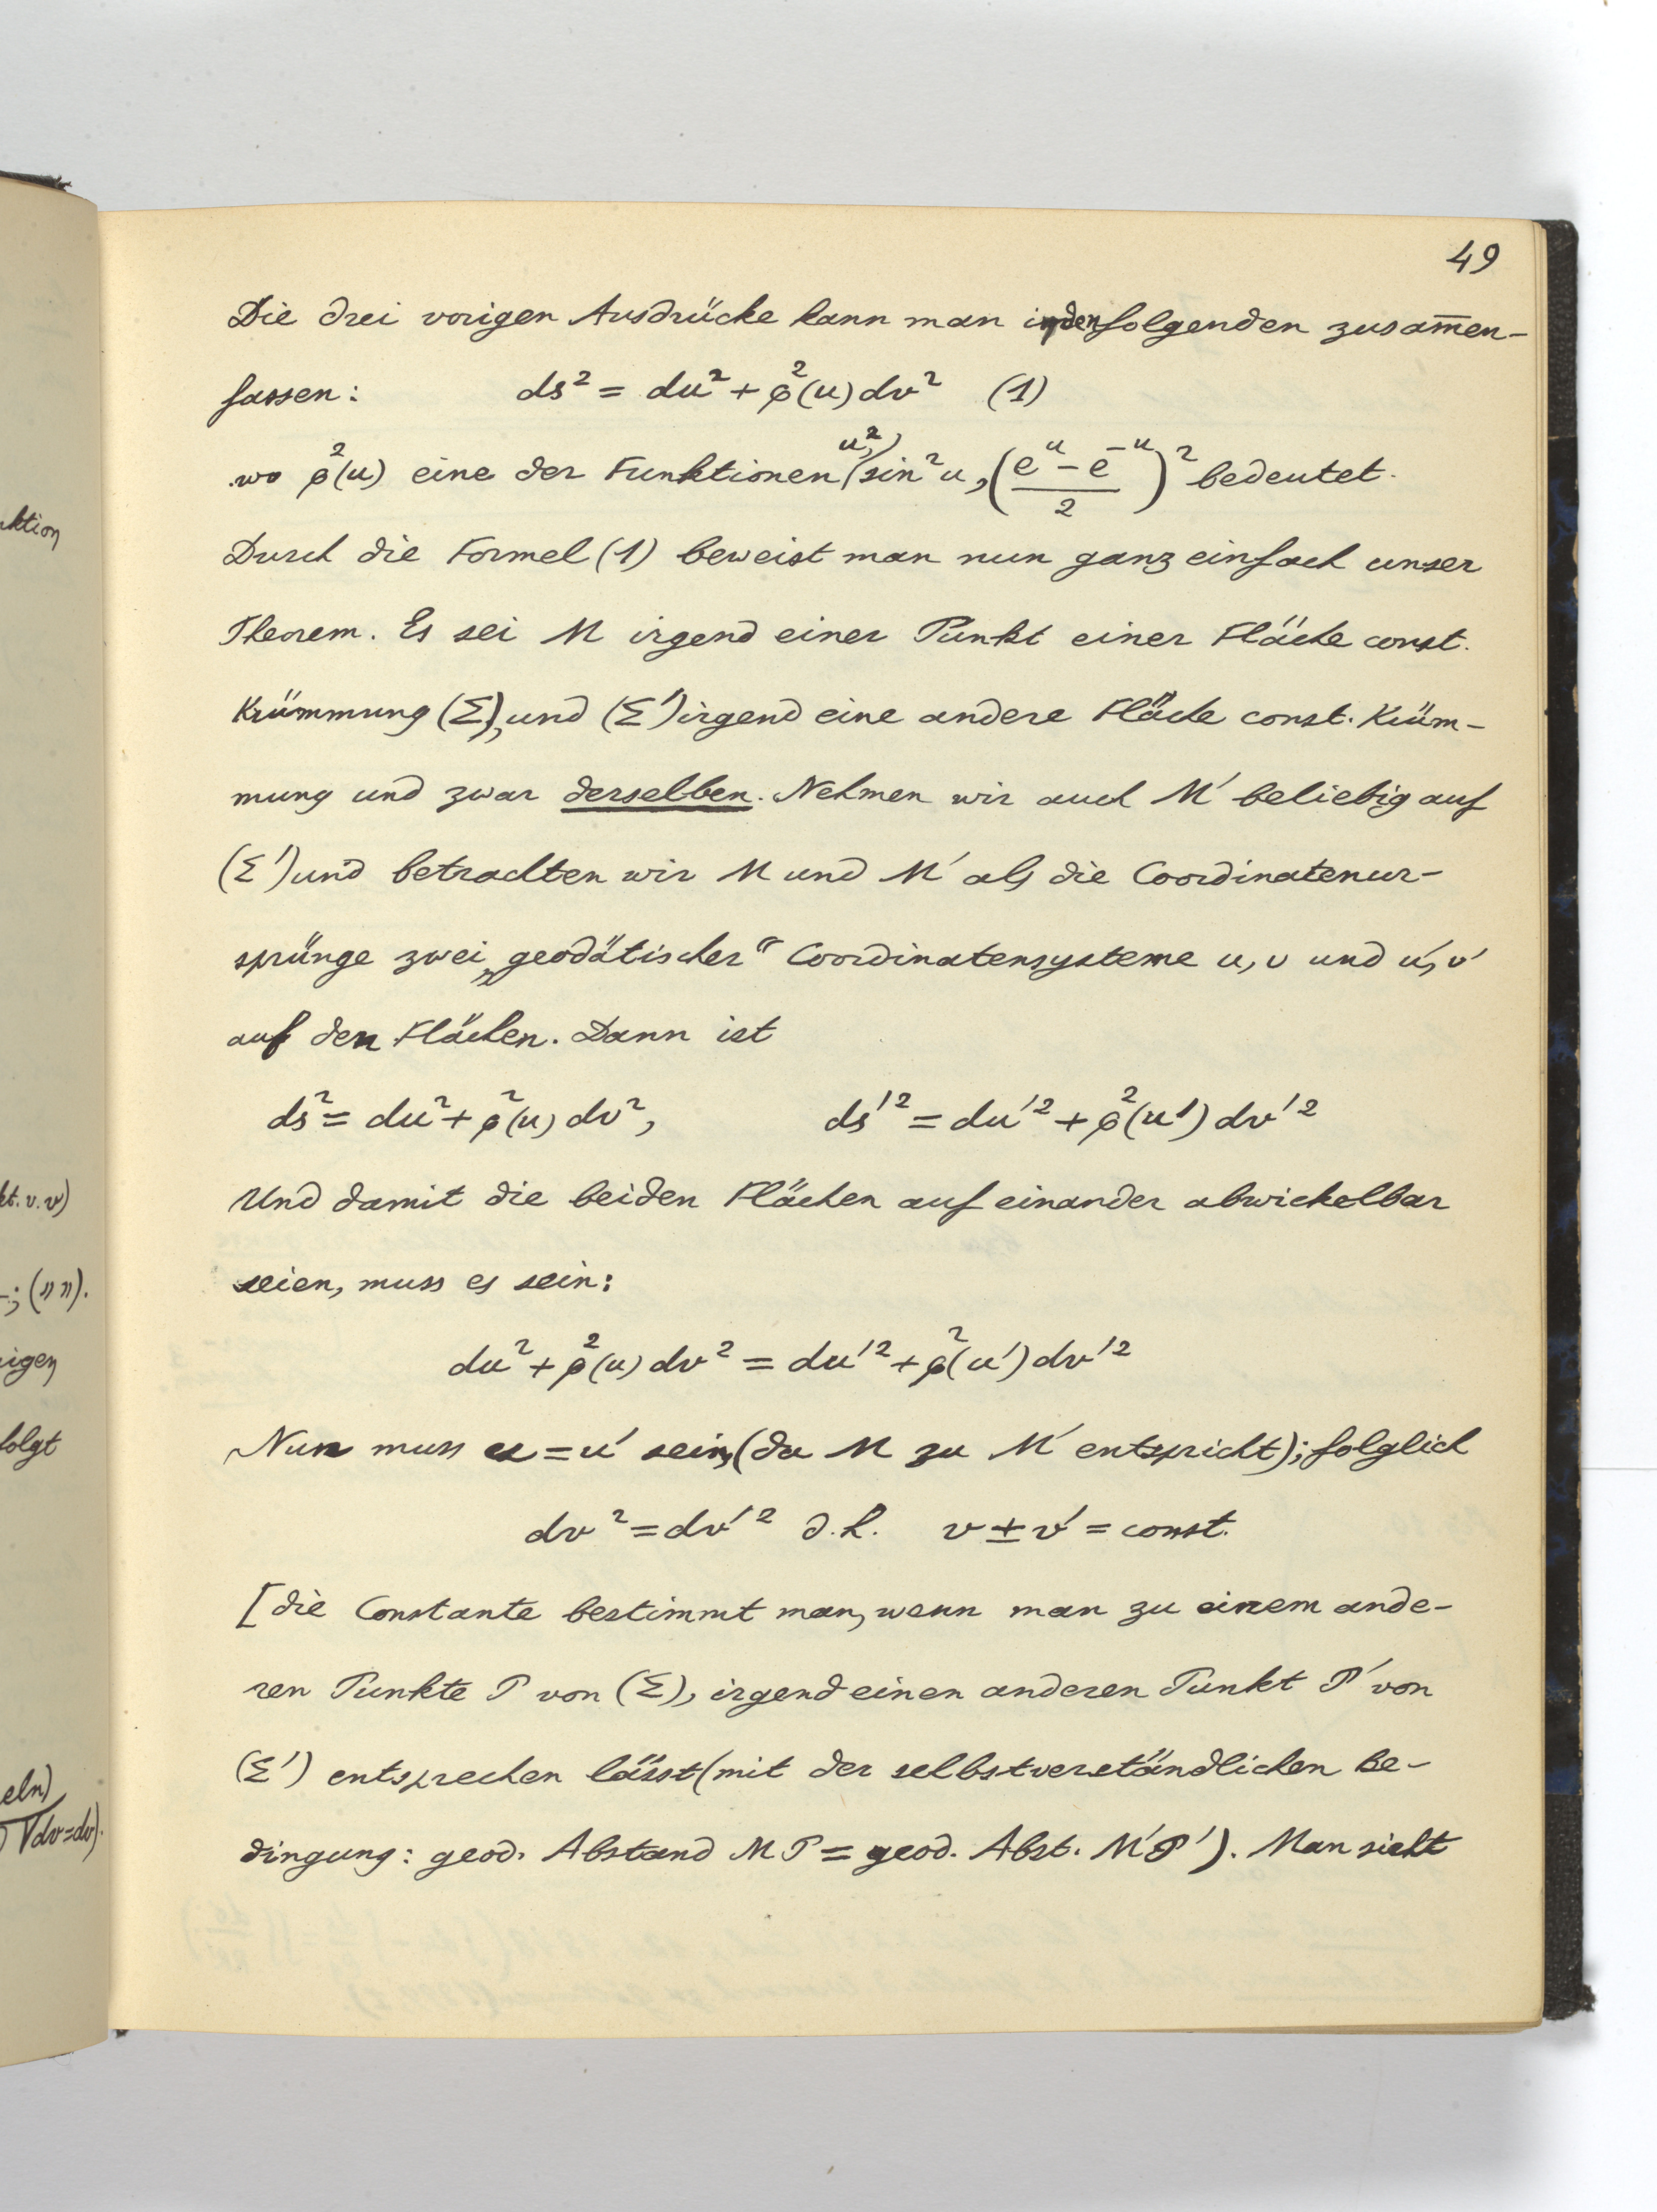 49
Die drei vorigen Ausdrücke kann man in den folgenden zusam̅en-
fassen: ds² = du² + φ²(u) dv² (1)
wo φ²(u) eine der Funktionen u², sin² u, ((e^u - e^-u)/2)² bedeutet.
Durch die Formel (1) beweist man nun ganz einfach unser
Theorem. Es sei M irgend einer Punkt einer Fläche const.
Krümmung (Σ), und (Σ') irgend eine andere Fläche const. Krüm-
mung und zwar derselben. Nehmen wir auch M' beliebig auf
(Σ') und betrachten wir M und M' als die Coordinatenur-
sprünge zwei „geodätischer“ Coordinatensysteme u, v und u', v'
auf den Flächen. Dann ist
ds² = du² + φ²(u) dv², ds'² = du'² + φ²(u') dv'²
Und damit die beiden Flächen auf einander abwickelbar
seien, muss es sein:
du² + φ²(u) dv² = du'² + φ²(u') dv'²
Nun muss u = u' sein, (da M zu M' entspricht); folglich
dv² = dv'² d.h. v ± v' = const.
[die Constante bestimmt man, wenn man zu einem ande-
ren Punkte P von (Σ), irgend einen anderen Punkt P' von
(Σ') entsprechen lässt (mit der selbstverständlichen Be-
dingung: geod. Abstand MP = geod. Abst. M'P'). Man sieht
ktion
kt. v. v)
-; („ „).
igen
folgt
eln)
dv=dv).